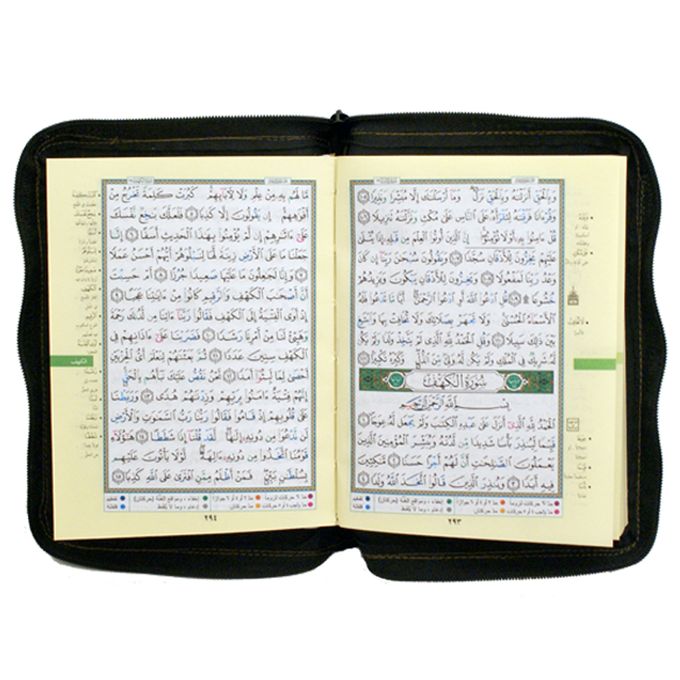 وَبِٱلْحَقِّ أَنزَلْنَٰهُ وَبِٱلْحَقِّ نَزَلَ وَمَآ أَرْسَلْنَٰكَ إِلَّا مُبَشِّرًا وَنَذِيرًا ١٠٥
وَقُرْءَانًا فَرَقْنَٰهُ لِتَقْرَأَهُۥ عَلَى ٱلنَّاسِ عَلَىٰ مُكْثٍ وَنَزَّلْنَٰهُ تَنزِيلًا ١٠٦
قُلْ ءَامِنُوا۟ بِهِۦٓ أَوْ لَا تُؤْمِنُوٓا۟ إِنَّ ٱلَّذِينَ أُوتُوا۟ ٱلْعِلْمَ مِن قَبْلِهِۦٓ إِذَا يُتْلَىٰ
عَلَيْهِمْ يَخِرُّونَ لِلْأَذْقَانِ سُجَّدًا ١٠٧ وَيَقُولُونَ سُبْحَٰنَ رَبِّنَآ إِن كَانَ
وَعْدُ رَبِّنَا لَمَفْعُولًا ١٠٨ وَيَخِرُّونَ لِلْأَذْقَانِ يَبْكُونَ وَيَزِيدُهُمْ
خُشُوعًا ۩ ١٠٩ قُلِ ٱدْعُوا۟ ٱللَّهَ أَوِ ٱدْعُوا۟ ٱلرَّحْمَٰنَ أَيًّا مَّا تَدْعُوا۟ فَلَهُ
ٱلْأَسْمَآءُ ٱلْحُسْنَىٰ وَلَا تَجْهَرْ بِصَلَاتِكَ وَلَا تُخَافِتْ بِهَا وَٱبْتَغِ
بَيْنَ ذَٰلِكَ سَبِيلًا ١١٠ وَقُلِ ٱلْحَمْدُ لِلَّهِ ٱلَّذِى لَمْ يَتَّخِذْ وَلَدًا وَلَمْ يَكُن
لَّهُۥ شَرِيكٌ فِى ٱلْمُلْكِ وَلَمْ يَكُن لَّهُۥ وَلِىٌّ مِّنَ ٱلذُّلِّ وَكَبِّرْهُ تَكْبِيرًۢا ١١١
سُورَةُ ٱلْكَهْفِ
بِسْمِ ٱللَّهِ ٱلرَّحْمَٰنِ ٱلرَّحِيمِ
ٱلْحَمْدُ لِلَّهِ ٱلَّذِىٓ أَنزَلَ عَلَىٰ عَبْدِهِ ٱلْكِتَٰبَ وَلَمْ يَجْعَل لَّهُۥ عِوَجَا ١
قَيِّمًا لِّيُنذِرَ بَأْسًا شَدِيدًا مِّن لَّدُنْهُ وَيُبَشِّرَ ٱلْمُؤْمِنِينَ ٱلَّذِينَ
يَعْمَلُونَ ٱلصَّٰلِحَٰتِ أَنَّ لَهُمْ أَجْرًا حَسَنًا ٢ مَّٰكِثِينَ
فِيهِ أَبَدًا ٣ وَيُنذِرَ ٱلَّذِينَ قَالُوا۟ ٱتَّخَذَ ٱللَّهُ وَلَدًا ٤
٢٩٣
مَّا لَهُم بِهِۦ مِنْ عِلْمٍ وَلَا لِءَابَآئِهِمْ كَبُرَتْ كَلِمَةً تَخْرُجُ مِنْ
أَفْوَٰهِهِمْ إِن يَقُولُونَ إِلَّا كَذِبًا ٥ فَلَعَلَّكَ بَٰخِعٌ نَّفْسَكَ
عَلَىٰٓ ءَاثَٰرِهِمْ إِن لَّمْ يُؤْمِنُوا۟ بِهَٰذَا ٱلْحَدِيثِ أَسَفًا ٦ إِنَّا
جَعَلْنَا مَا عَلَى ٱلْأَرْضِ زِينَةً لَّهَا لِنَبْلُوَهُمْ أَيُّهُمْ أَحْسَنُ عَمَلًا
٧ وَإِنَّا لَجَٰعِلُونَ مَا عَلَيْهَا صَعِيدًا جُرُزًا ٨ أَمْ حَسِبْتَ
أَنَّ أَصْحَٰبَ ٱلْكَهْفِ وَٱلرَّقِيمِ كَانُوا۟ مِنْ ءَايَٰتِنَا عَجَبًا ٩
إِذْ أَوَى ٱلْفِتْيَةُ إِلَى ٱلْكَهْفِ فَقَالُوا۟ رَبَّنَآ ءَاتِنَا مِن لَّدُنكَ رَحْمَةً
وَهَيِّئْ لَنَا مِنْ أَمْرِنَا رَشَدًا ١٠ فَضَرَبْنَا عَلَىٰٓ ءَاذَانِهِمْ فِى
ٱلْكَهْفِ سِنِينَ عَدَدًا ١١ ثُمَّ بَعَثْنَٰهُمْ لِنَعْلَمَ أَىُّ ٱلْحِزْبَيْنِ
أَحْصَىٰ لِمَا لَبِثُوٓا۟ أَمَدًا ١٢ نَّحْنُ نَقُصُّ عَلَيْكَ نَبَأَهُم بِٱلْحَقِّ
إِنَّهُمْ فِتْيَةٌ ءَامَنُوا۟ بِرَبِّهِمْ وَزِدْنَٰهُمْ هُدًى ١٣ وَرَبَطْنَا
عَلَىٰ قُلُوبِهِمْ إِذْ قَامُوا۟ فَقَالُوا۟ رَبُّنَا رَبُّ ٱلسَّمَٰوَٰتِ وَٱلْأَرْضِ
لَن نَّدْعُوَا۟ مِن دُونِهِۦٓ إِلَٰهًا لَّقَدْ قُلْنَآ إِذًا شَطَطًا ١٤ هَٰٓؤُلَآءِ
قَوْمُنَا ٱتَّخَذُوا۟ مِن دُونِهِۦٓ ءَالِهَةً لَّوْلَا يَأْتُونَ عَلَيْهِم
بِسُلْطَٰنٍۭ بَيِّنٍ فَمَنْ أَظْلَمُ مِمَّنِ ٱفْتَرَىٰ عَلَى ٱللَّهِ كَذِبًا ١٥
٢٩٤
الكهف